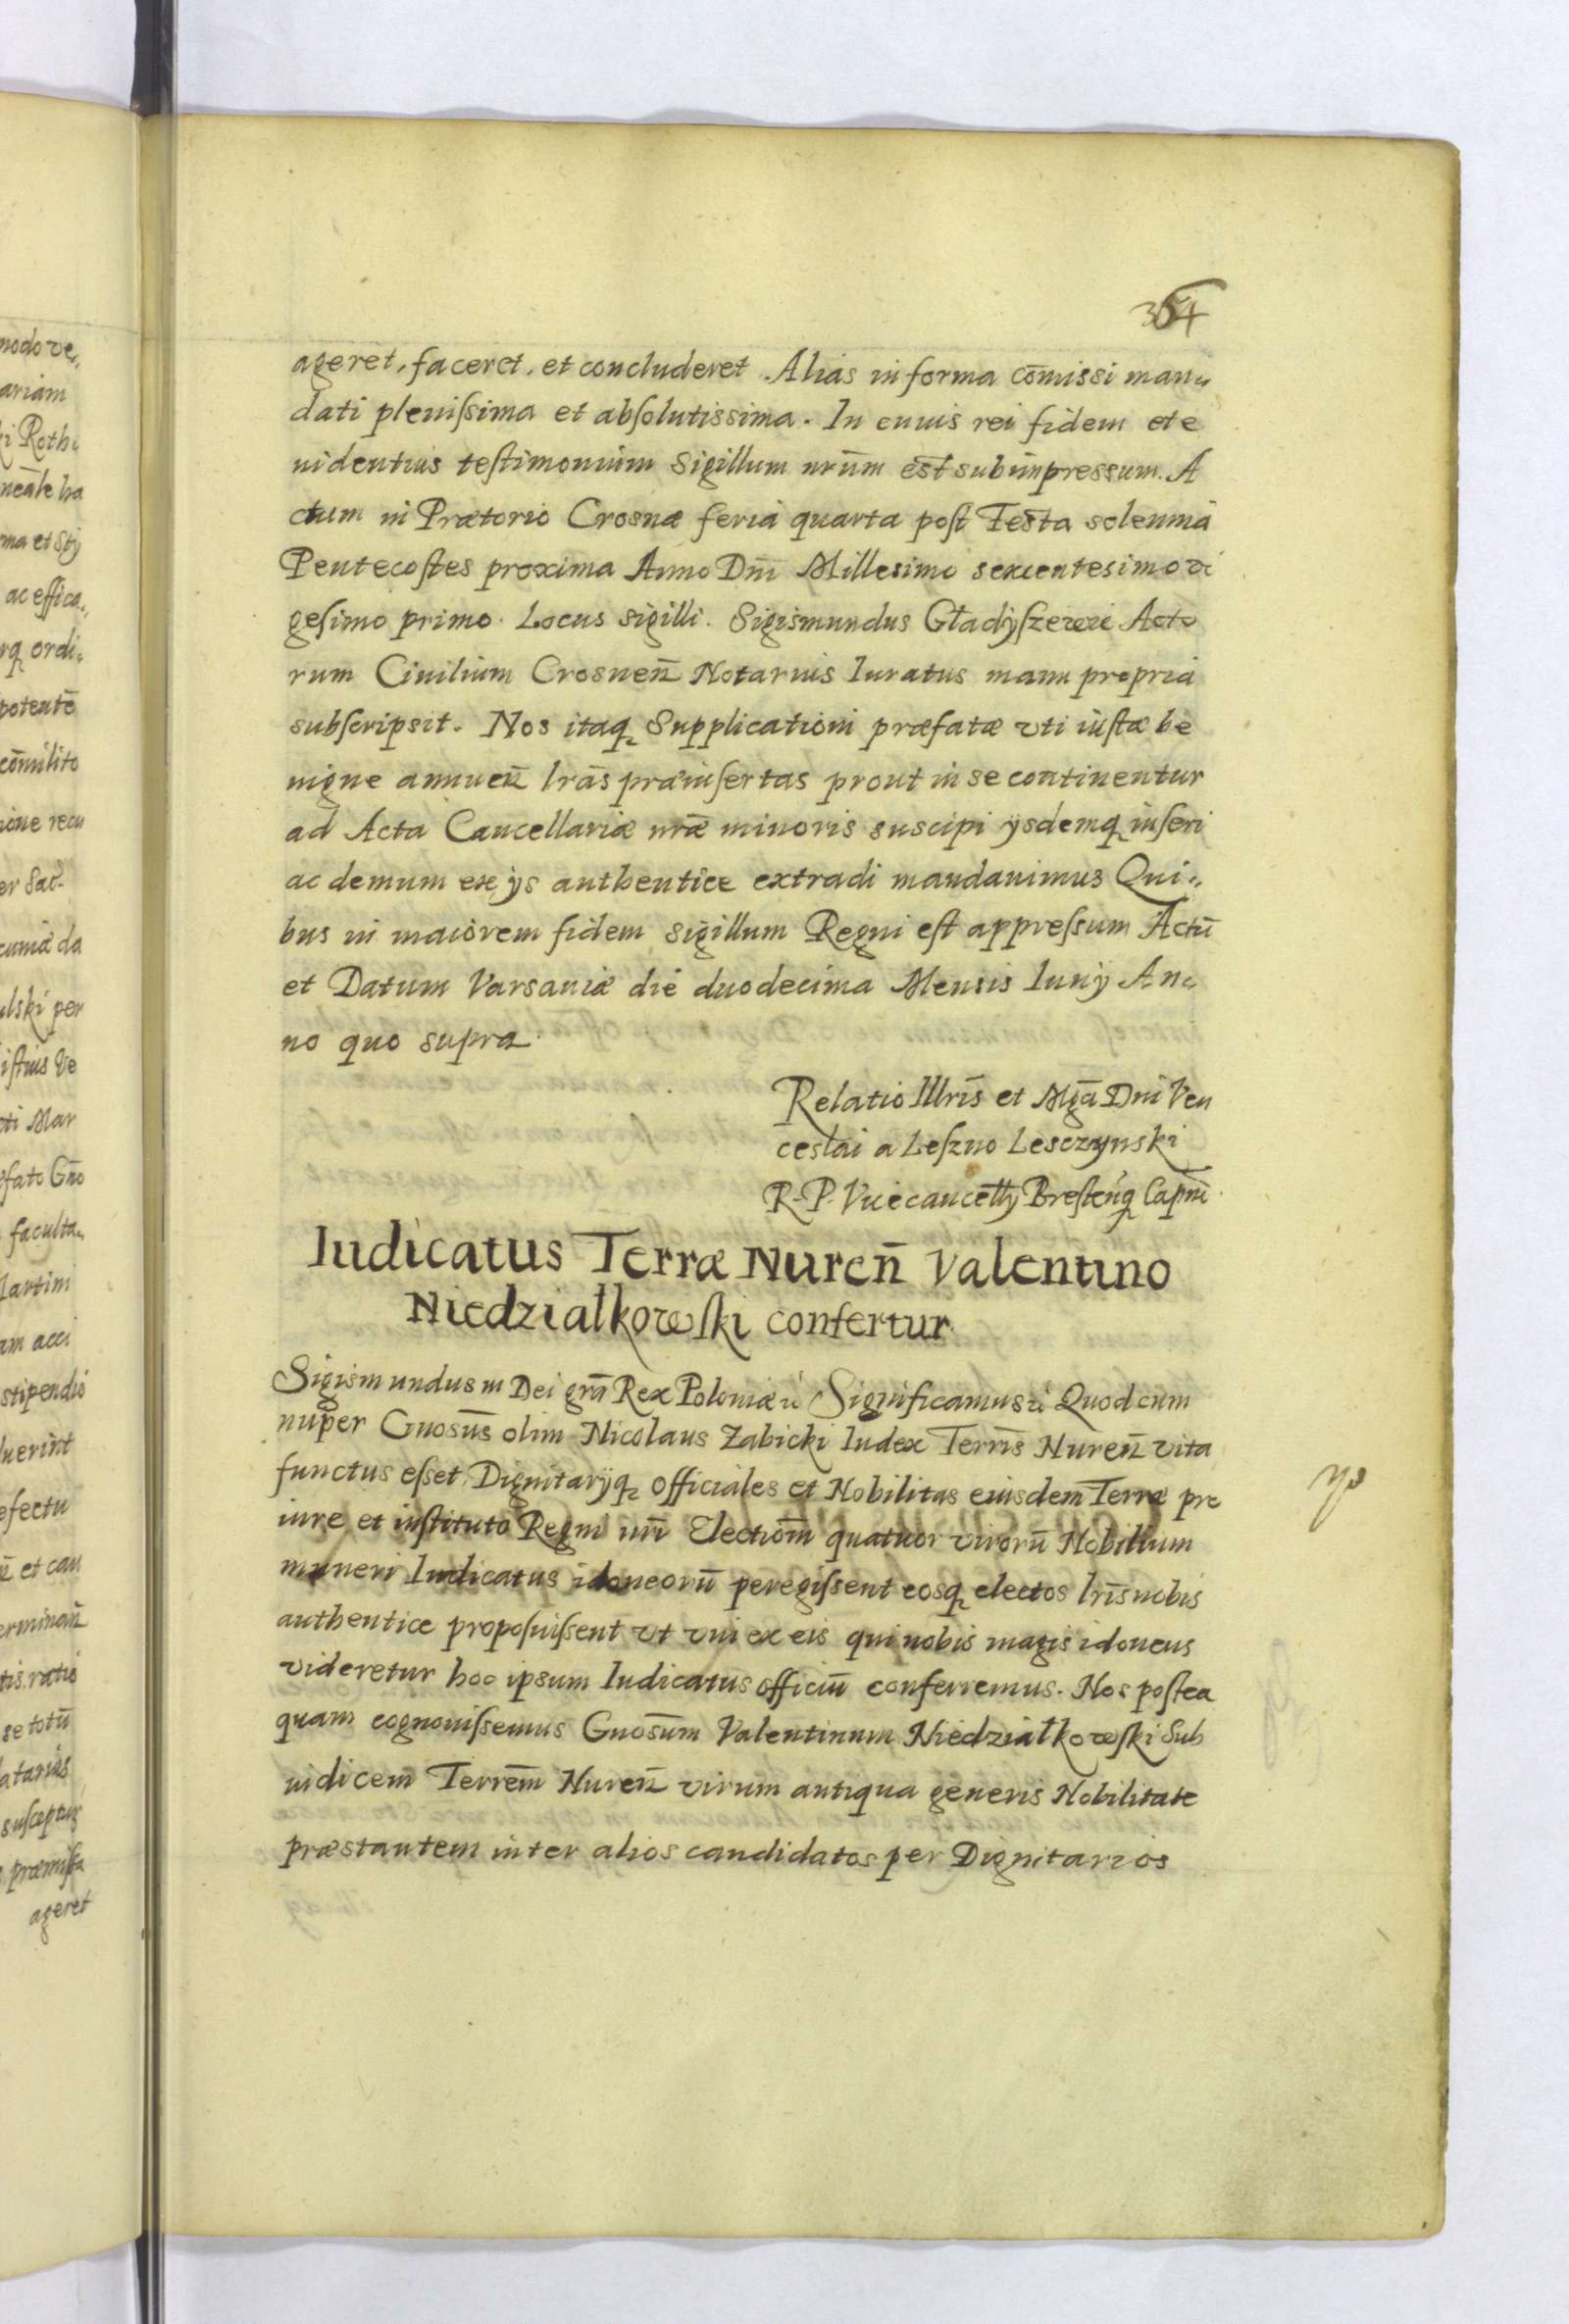 364
ageret, faceret, et concluderet. Alias in forma cōmissi man„
dati pleniſsima et abſolutissima. In cuius rei fidem et e
uidentius teſtimonium Sigillum nr̄um est subimpressum. A
ctum in Prætorio Crosnæ feria quarta poſt Festa solenniá
Pentecoſtes proxima Anno Dn̄i Millesimo sexcentesimo vi
geſimo primo. Locus sigilli. Sigismundus Gładyſzewic Acto
rum Ciuilium Crosnen̄ Notarius Iuratus manu propria
subſcripsit. Nos itaq̨ Supplicationi præfatæ vti iuſtæ be
nigne annuen̄ lrās præinſertas prout in se continentur
ad Acta Cancellariæ nr̄æ minoris suscipi ijsdemq̨ inſeri
ac demum ex ijs authentice extradi mandauimus Qui„
bus in maiorem fidem sigillum Regni eſt appreſsum Actū
et Datum Varsauiæ die duodecima Mensis Iunij An„
no quo supra.
Relatio Illris̄ et Mgā Dn̄i Ven
ceslai a Leſzno Lesczynski
R. P. Vicecancellȳ Breſten̄q̨ Capn̄i.
Iudicatus Terræ Nuren̄ Valentino
Niedziałkowſki confertur.
Sigismundus III Dei grā Rex Poloniæ ꝛc Significamus ꝛc Quod cum
nuper Gnosus̄ olim Nicolaus Zabicki Iudex Terris̄ Nuren̄ vita
functus eſset, Dignitarijq̨ officiales et Nobilitas eiusdem Terræ pre
iure et inſtituto Regni nr̄i Electiom̄ quatuor virorū Nobilium
muneri Iudicatus idoneorū peregiſsent eosq̨ electos lris̄ nobis
authentice propoſuiſsent vt vni ex eis qui nobis magis idoneus
videretur hoc ipsum Iudicatus officiū conferremus. Nos poſtea
quam cognouiſsemus Gnosum̄ Valentinum Niedziałkowſki Sub
iudicem Terrem̄ Nuren̄ virum antiqua generis Nobilitate
præstantem inter alios candidatos per Dignitarios